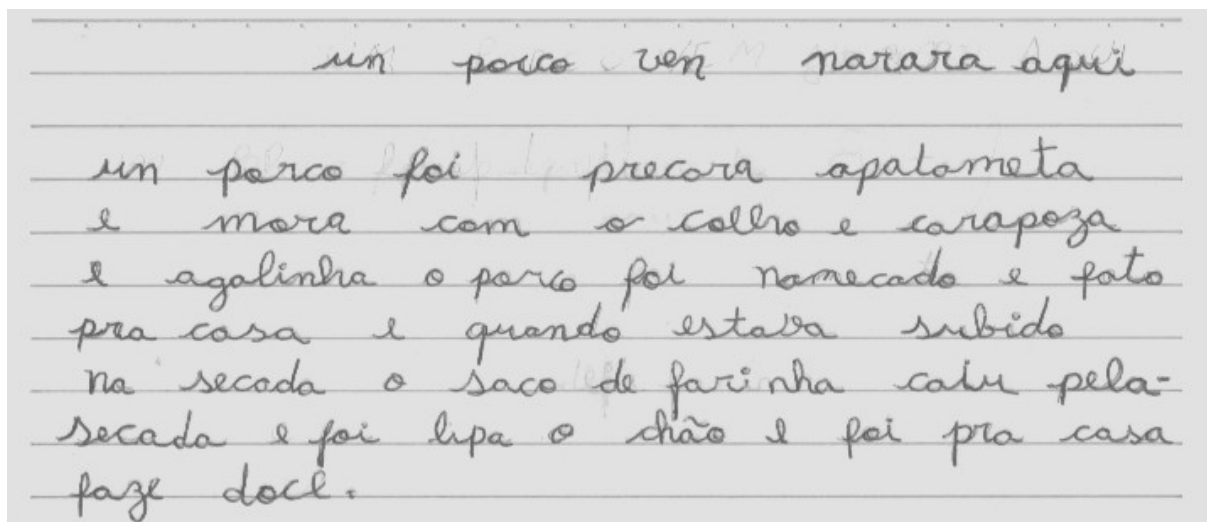 un porco ven narara aqui
un porco foi precora apalometa
e mora com o collho e carapoza
e agalinha o porco foi namecado e fato
pra casa e quando estava subido
na secada o saco de farinha caiu pela-
secada e foi lipa o chão e foi pra casa
faze doce.